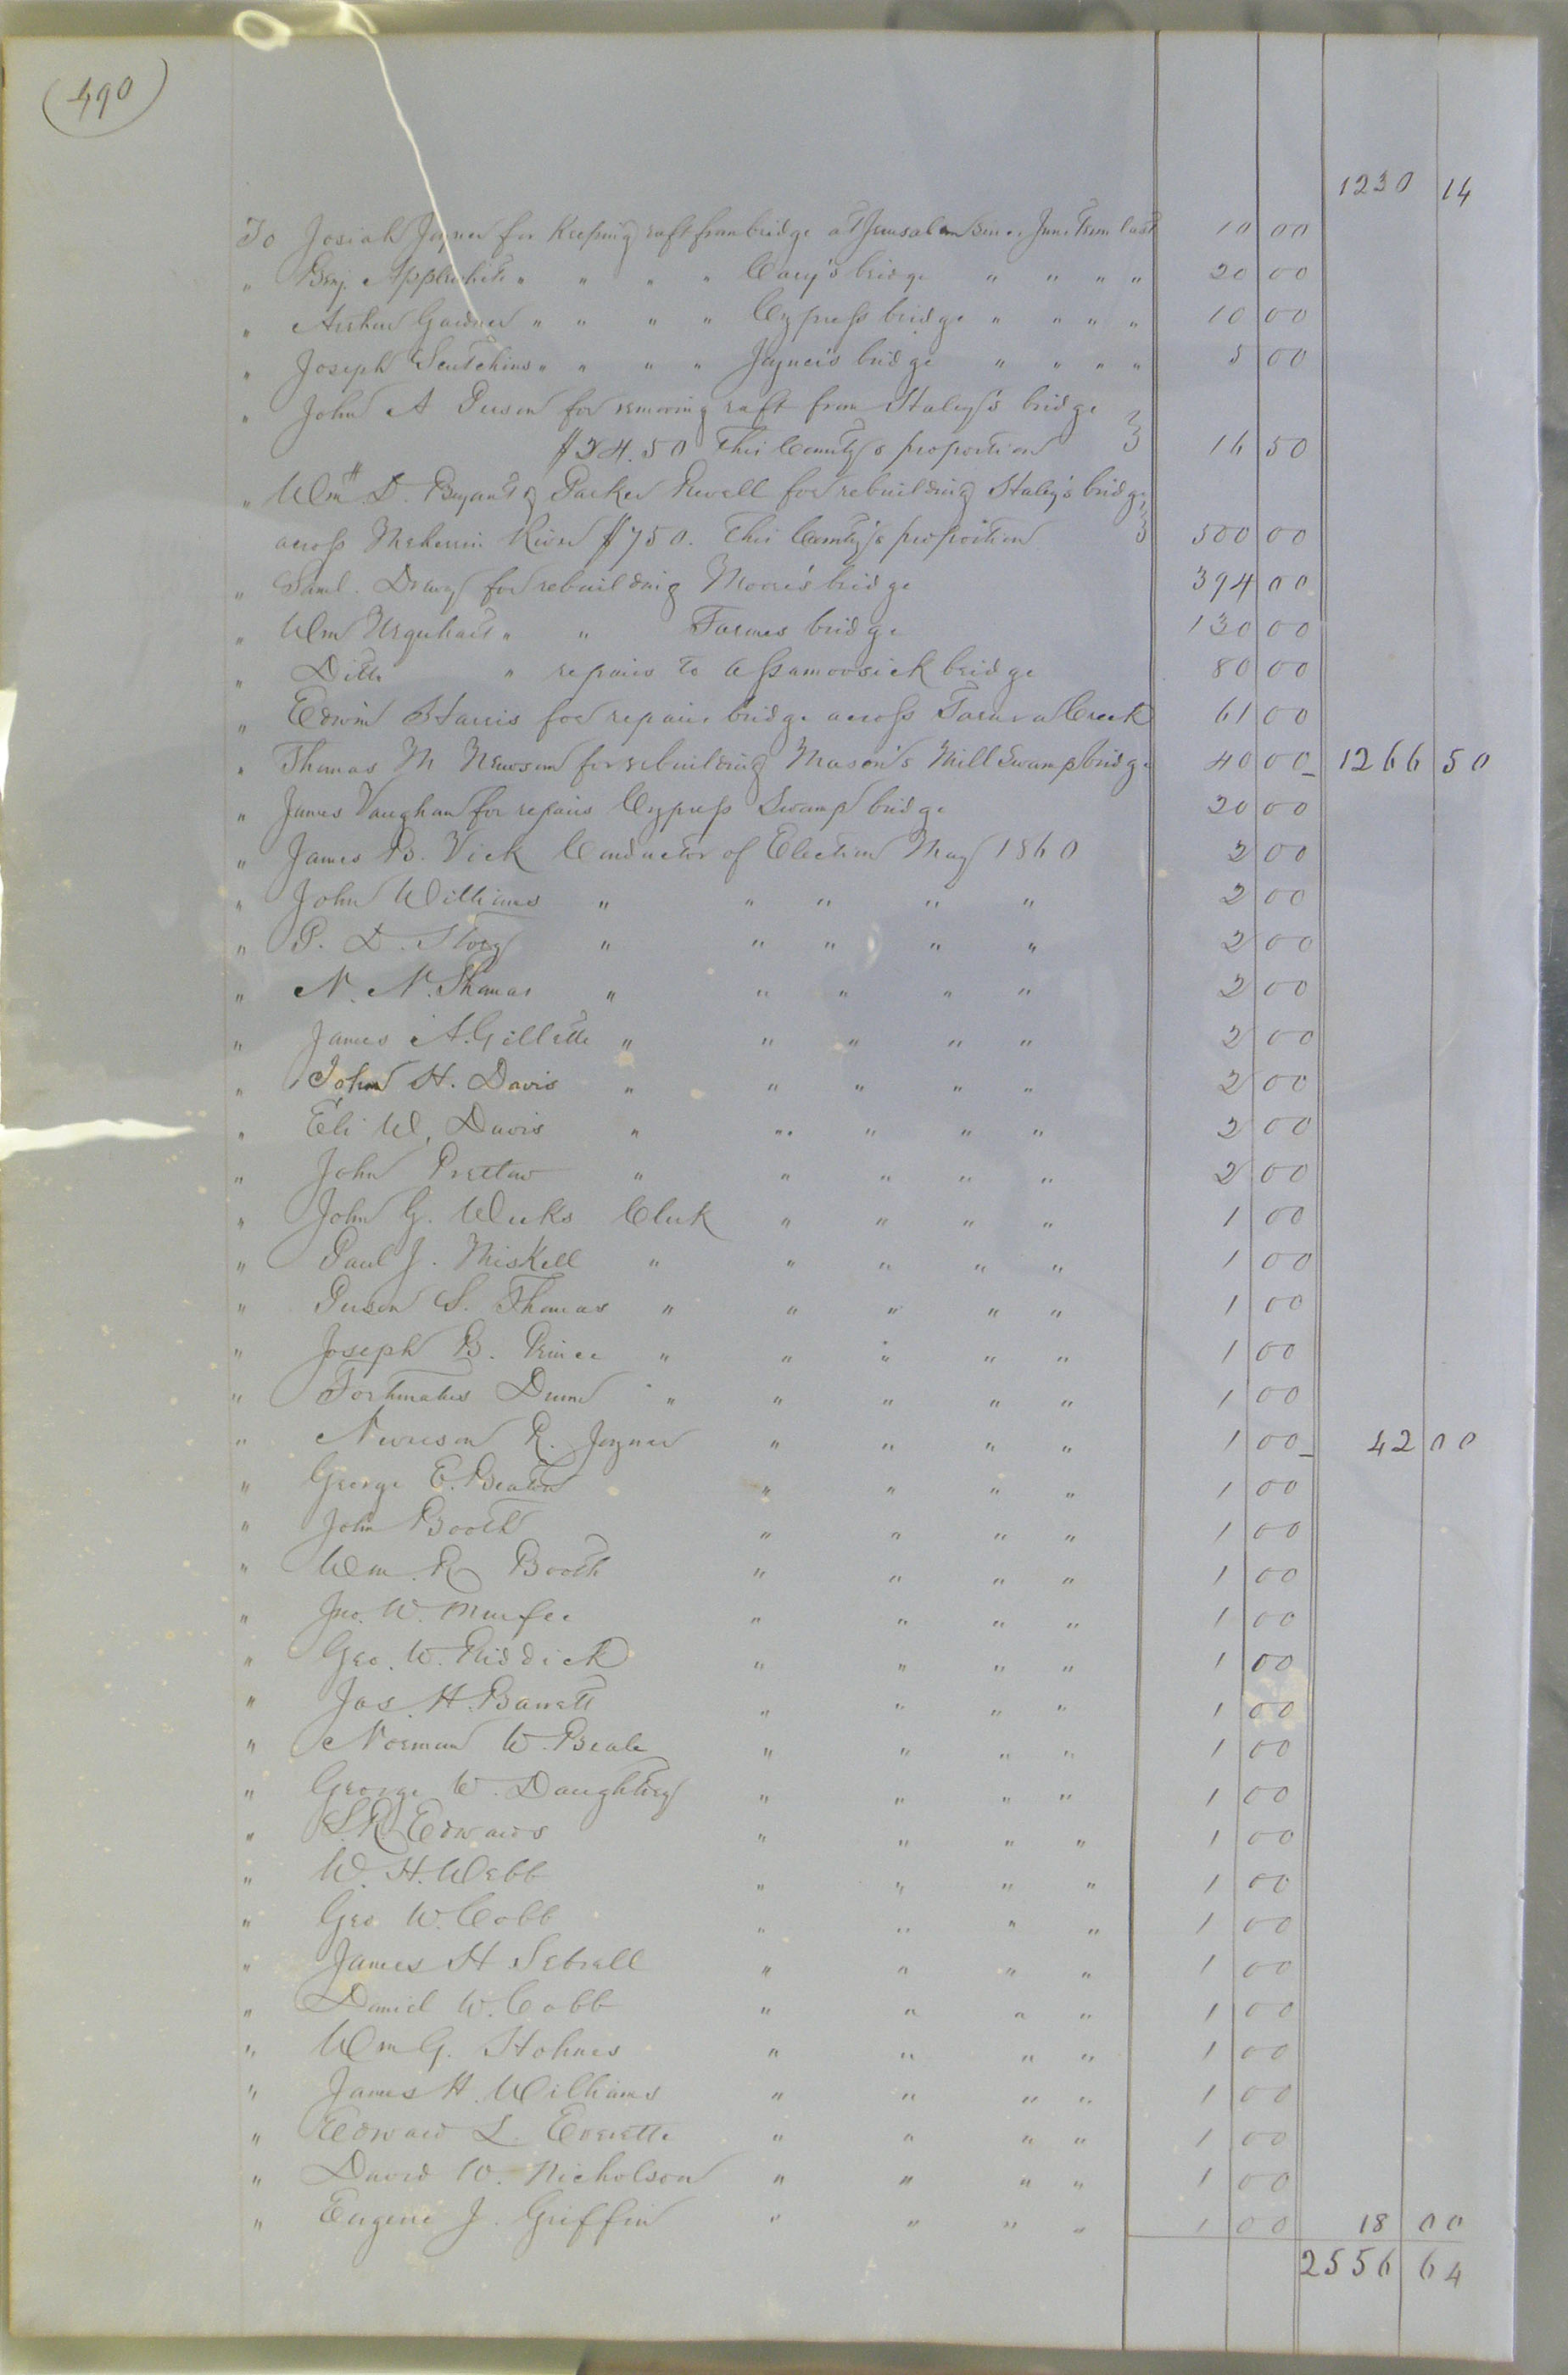 (490)
1230 14
To Josiah Joyner for Keeping raft from bridge at Jerusalem Since June Term last 10 00
" Benj. Applewhite " " " " Cary's bridge " " " " 20 00
" Arthur Gardner " " " " Cypress bridge " " " " 10 00
" Joseph Scutchins " " " " Joyner's bridge " " " " 5 00
" John A Person for removing raft from Haley's bridge
$24.50 This County's proportion 16 50
" Wm D. Bryant & Parker Revell for rebuilding Haley's bridge
across Meherrin River $750. This County's proportion 500 00
" Saml. Drewry for rebuilding Moore's bridge 394 00
" Wm Urquhart " " Farmer's bridge 130 00
" Ditto " repairs to Assamoosick bridge 80 00
" Edwin Harris for repair bridge across Tarara Creek 61 00
" Thomas M Newsom for rebuilding Mason's Mill Swamp bridge 40 00 1266 50
" James Vaughan for repairs Cypress Swamp bridge 20 00
" James B. Vick Conductor of Election May 1860 2 00
" John Williams " " " " " 2 00
" P. D. Story " " " " " 2 00
" N. N. Thomas " " " " " 2 00
" James A. Gillette " " " " " 2 00
" John H. Davis " " " " " 2 00
" Eli W. Davis " " " " " 2 00
" John Pretlow " " " " " 2 00
" John G. Weeks Clerk " " " " 1 00
" Paul J. Miskell " " " " " 1 00
" Person S. Thomas " " " " " 1 00
" Joseph B. Prince " " " " " 1 00
" Fortunatus Drew " " " " " 1 00
" Newsom R. Joyner " " " " 1 00 42 00
" George E. Beaton " " " " 1 00
" John Booth " " " " 1 00
" Wm. R Booth " " " " 1 00
" Jno. W. Murfee " " " " 1 00
" Geo. W. Riddick " " " " 1 00
" Jas. H. Barrett " " " " 1 00
" Norman W. Beale " " " " 1 00
" George W. Daughtrey " " " " 1 00
" S. R. Edwards " " " " 1 00
" W. H. Webb " " " " 1 00
" Geo W. Cobb " " " " 1 00
" James H Sebrell " " " " 1 00
" Daniel W. Cobb " " " " 1 00
" Wm G. Holmes " " " " 1 00
" James H. Williams " " " " 1 00
" Edward L. Everette " " " " 1 00
" David W. Nicholson " " " " 1 00
" Eugene J. Griffin " " " " 1 00 18 00
2556 64